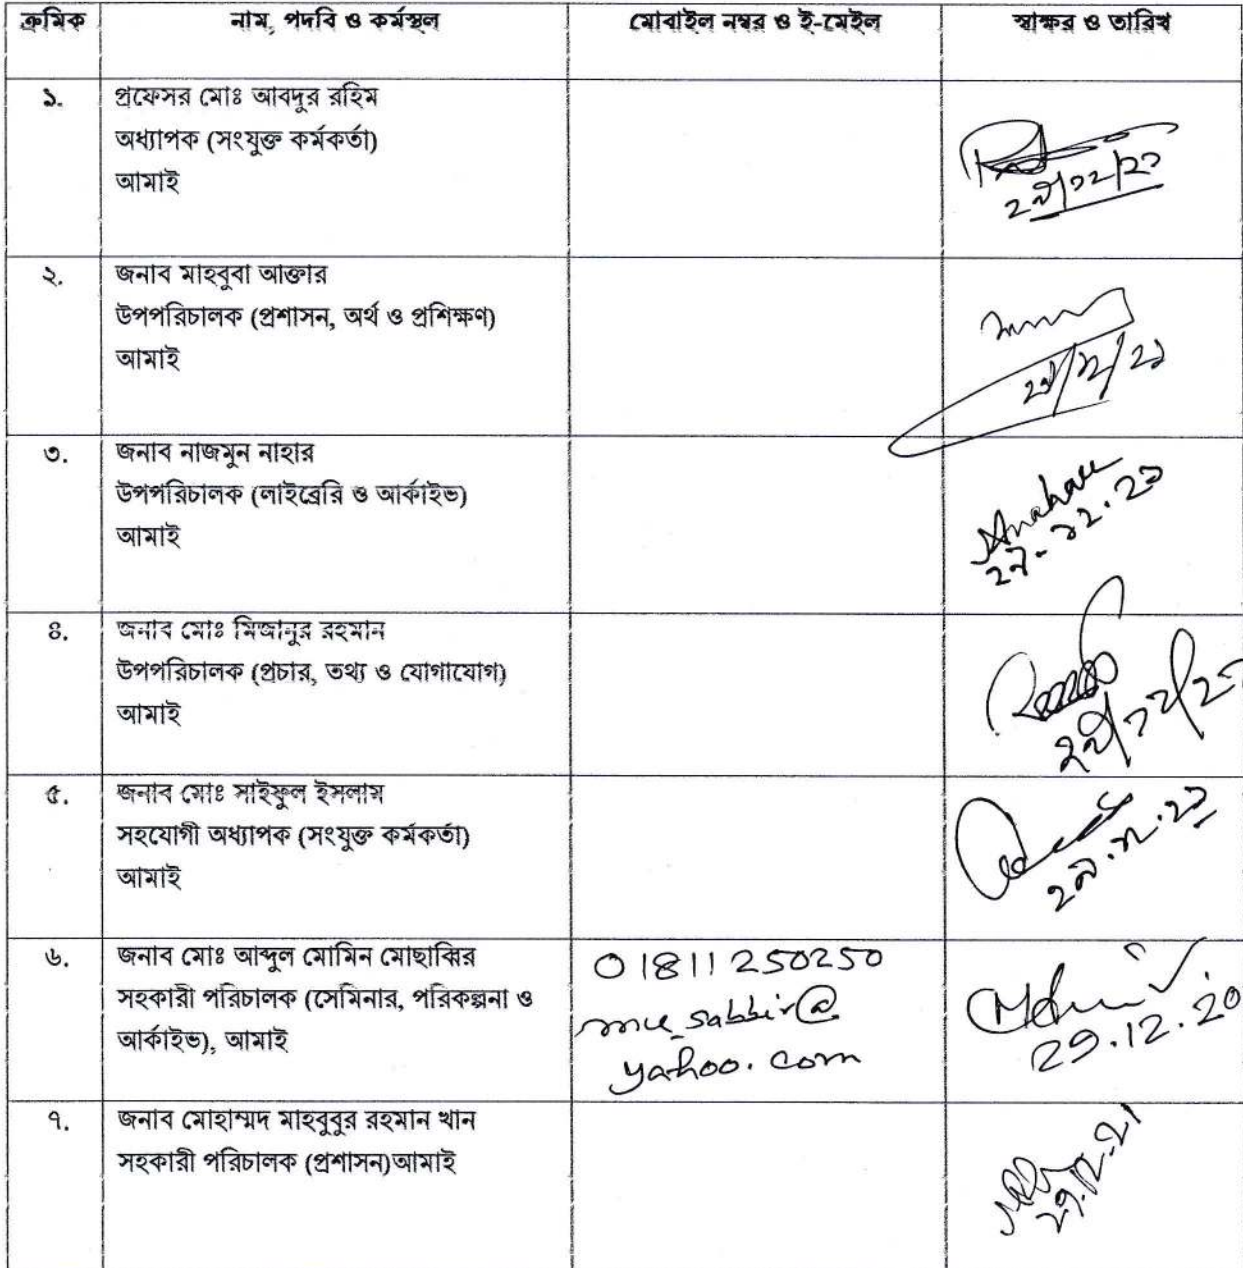 ক্রমিক নাম, পদবি ও কর্মস্থল মোবাইল নম্বর ও ই-মেইল স্বাক্ষর ও তারিখ
১. প্রফেসর মোঃ আবদুর রহিম
অধ্যাপক (সংযুক্ত কর্মকর্তা)
আমাই
২৯/১২/২১
২. জনাব মাহবুবা আক্তার
উপপরিচালক (প্রশাসন, অর্থ ও প্রশিক্ষণ)
আমাই
২৯/১২/২১
৩. জনাব নাজমুন নাহার
উপপরিচালক (লাইব্রেরি ও আর্কাইভ)
আমাই
২৯-১২-২১
৪. জনাব মোঃ মিজানুর রহমান
উপপরিচালক (প্রচার, তথ্য ও যোগাযোগ)
আমাই
২৯/১২/২১
৫. জনাব মোঃ সাইফুল ইসলাম
সহযোগী অধ্যাপক (সংযুক্ত কর্মকর্তা)
আমাই
২৯.১২.২১
৬. জনাব মোঃ আব্দুল মোমিন মোছাব্বির
সহকারী পরিচালক (সেমিনার, পরিকল্পনা ও
আর্কাইভ), আমাই
01811250250
mu_sabbir@
yahoo.com
29.12.20
৭. জনাব মোহাম্মদ মাহবুবুর রহমান খান
সহকারী পরিচালক (প্রশাসন)আমাই
২৯.12.21